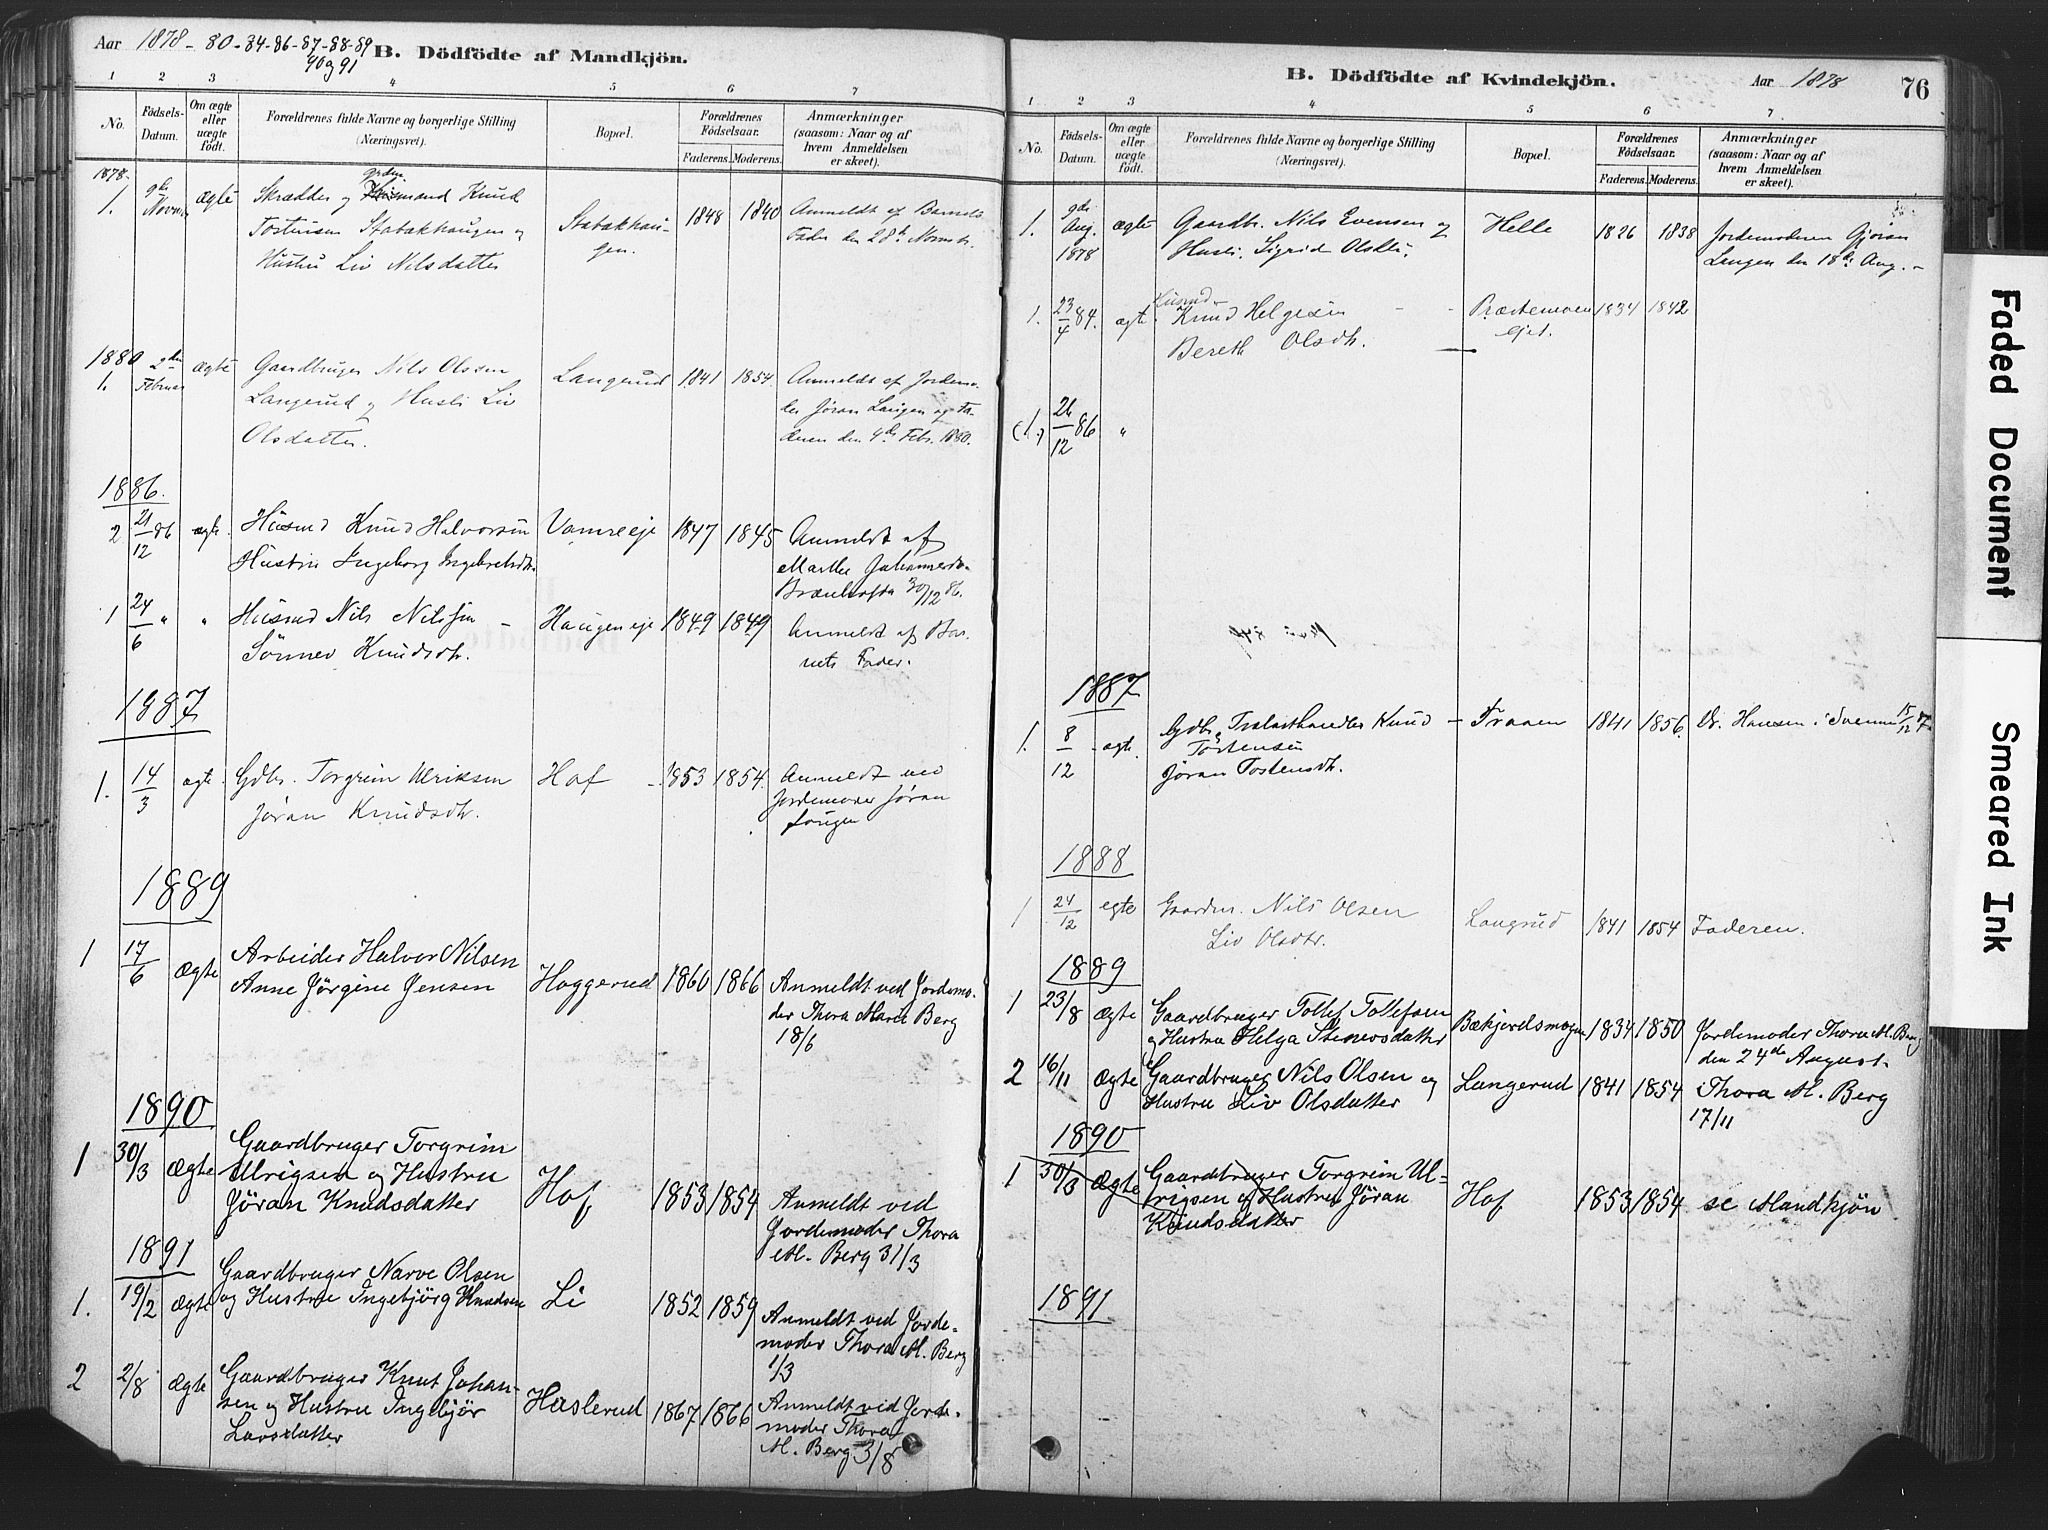 Aar 1878-80-84-86-87-88-89
90 og 91
B. Dödfödte af Mandkjön.
1 2 3 4 5 6 7
No. Födsels-Datum. Om ægte eller uægte födt. Forældrenes fulde Navne og borgerlige Stilling (Næringsvei). Bopæl. Forældrenes Födselsaar. Faderens. Moderens. Anmærkninger (saasom: Naar og af hvem Anmeldelsen er skeet).
1878.
1. 9de Novbr ægte Skrædder og Husmand Knud Stabakhau- 1848 1840 Anmeldt af Barnets
Tostensen Stabakhaugen og gen. Fader den 28de Novembr.
Hustru Liv Nilsdatter
1880
1. 2den Februar ægte Gaardbruger Nils Olssen Langerud 1841 1854 Anmeldt af Jordemo-
Langerud og Hustr. Liv der Jøran Langen og Fa-
Olsdatter. deren den 4de Febr. 1880.
1886.
2 21/12 86 ægte. Husmd Knud Halvorsen Vamreeje 1847 1845 Anmeldt af
Hustru Ingeborg Ingebretsdtr. Marthe Johannesdtr.
30/12 86.
1 24/6 " " Husmd Nils Nilssen - Haugeneje 1849 1849 Anmeldt af Bar-
Sønnev Knudsdtr. nets Fader.
1887
1. 14/3 ægte. Gdbr. Torgrim Ulriksen Hof 1853 1854. Anmeldt ved
Jøran Knudsdtr. Jordemoder Jøran
Langen
1889
1 17/6 Ægte Arbeider Halvor Nilsen Haggerud 1860 1866 Anmeldt ved Jordemo-
Anne Jörgine Jensen der Thora Marie Berg
18/6
1890
1 30/3 Ægte Gaardbruger Torgrim Hof 1853 1854 Anmeldt ved
Ulrigsen og Hustru Jordemoder Thora
Jöran Knudsdatter M. Berg 31/3
1891
1. 19/2 Ægte Gaardbruger Narve Olsen Li 1852 1859 Anmeldt ved Jorde-
og Hustru Ingebjörg Knudsen moder Thora M. Berg
1/3
2 2/8 Ægte Gaardbruger Knut Johan- Haslerud 1867 1866 Anmeldt vid Jorde-
sen og Hustru Ingebjör moder Thora
Larsdatter M. Berg 3/8
B. Dödfödte af Kvindekjön. Aar 1878 76
1 2 3 4 5 6 7
No. Födsels-Datum. Om ægte eller uægte födt. Forældrenes fulde Navne og borgerlige Stilling (Næringsvei). Bopæl. Forældrenes Födselsaar. Faderens. Moderens. Anmærkninger (saasom: Naar og af hvem Anmeldelsen er skeet).
1. 9de Aug. 1878 ægte Gaardbr. Nils Evensen og Helle 1826 1838 Jordemoderen Gjøran
Hustr. Sigrid Olsdtr. Langen den 18de Aug.-
1. 23/4 84. ægte Husmd- Knud Helgesen Præstemoen 1834 1842
Bereth Olsdtr. ejet.
(1.) 26/12 86 "
1887
1. 8/12 ægte. Gdbr. Trælasthandler Knud - Fraaen 1841 1856. Dr. Hansen i Svenne 15/12 87
Tostensen
Jøran Tostensdtr.
1888
1 24/12 egte Gaardm. Nils Olsen Langrud 1841 1854 Faderen.
Liv Olsdtr.
1889
1 23/8 Ægte Gaardbruger Tollef Tollefsen Bækjordsmogen 1834 1850 Jordemoder Thora M. Berg
og Hustru Helga Stenersdatter den 24de August.
2 16/11 Ægte Gaardbruger Nils Olsen og Langerud 1841 1854 Thora M. Berg
Hustru Liv Olsdatter 17/11
1890
1 30/3 Ægte Gaardbruger Torgrim Ul- Hof 1853 1854 se Mandkjön
rigsen og Hustru Jöran
Knudsdatter
1891
Faded Document
Smeared Ink